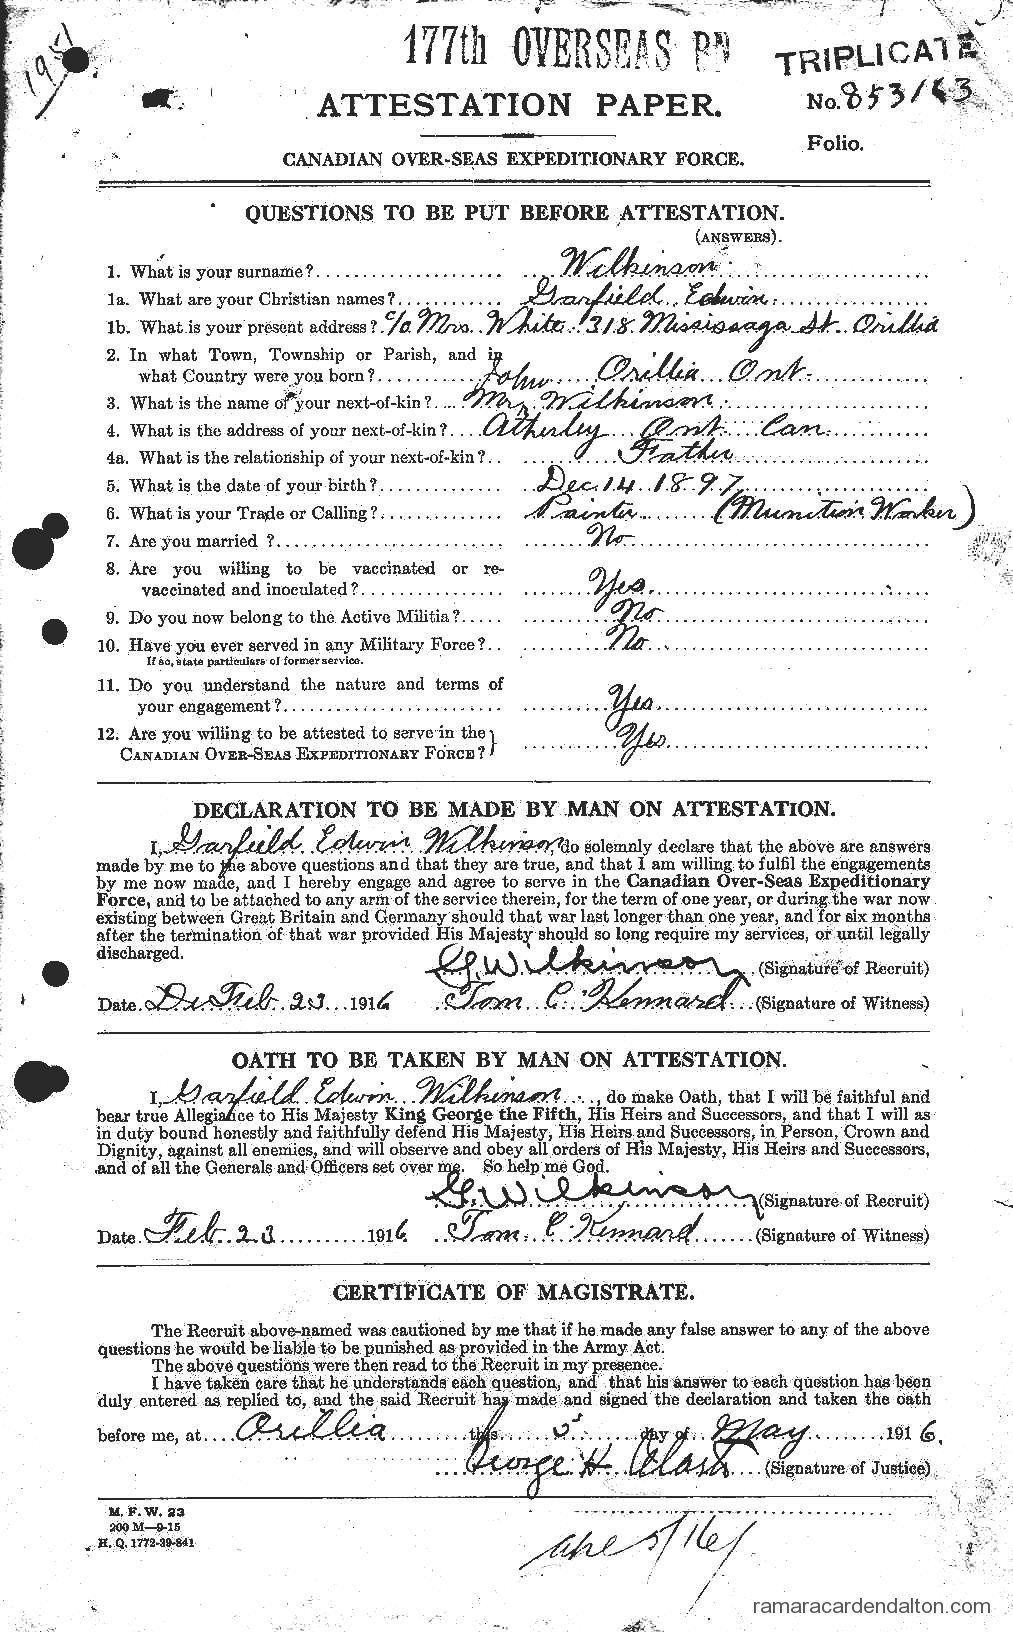 1917
177th OVERSEAS BN
TRIPLICATE
No. 853163
ATTESTATION PAPER.
Folio.
CANADIAN OVER-SEAS EXPEDITIONARY FORCE.
QUESTIONS TO BE PUT BEFORE ATTESTATION.
(ANSWERS).
1. What is your surname? Wilkinson
1a. What are your Christian names? Garfield Edwin
1b. What is your present address? c/o Mrs. White 318 Mississaga St. Orillia
2. In what Town, Township or Parish, and in
what Country were you born? Orillia Ont.
3. What is the name of your next-of-kin? Mr John Wilkinson
4. What is the address of your next-of-kin? Atherley Ont Can.
4a. What is the relationship of your next-of-kin? Father
5. What is the date of your birth? Dec. 14 1897
6. What is your Trade or Calling? Painter (Munition Worker)
7. Are you married ? No
8. Are you willing to be vaccinated or re-
vaccinated and inoculated? Yes.
9. Do you now belong to the Active Militia? No
10. Have you ever served in any Military Force? No
If so, state particulars of former service.
11. Do you understand the nature and terms of
your engagement? Yes
12. Are you willing to be attested to serve in the
CANADIAN OVER-SEAS EXPEDITIONARY FORCE? Yes
DECLARATION TO BE MADE BY MAN ON ATTESTATION.
I, Garfield Edwin Wilkinson, do solemnly declare that the above are answers
made by me to the above questions and that they are true, and that I am willing to fulfil the engagements
by me now made, and I hereby engage and agree to serve in the Canadian Over-Seas Expeditionary
Force, and to be attached to any arm of the service therein, for the term of one year, or during the war now
existing between Great Britain and Germany should that war last longer than one year, and for six months
after the termination of that war provided His Majesty should so long require my services, or until legally
discharged.
G. Wilkinson (Signature of Recruit)
Date. Feb 23 1916 Tom C. Kennard (Signature of Witness)
OATH TO BE TAKEN BY MAN ON ATTESTATION.
I, Garfield Edwin Wilkinson, do make Oath, that I will be faithful and
bear true Allegiance to His Majesty King George the Fifth, His Heirs and Successors, and that I will as
in duty bound honestly and faithfully defend His Majesty, His Heirs and Successors, in Person, Crown and
Dignity, against all enemies, and will observe and obey all orders of His Majesty, His Heirs and Successors,
and of all the Generals and Officers set over me. So help me God.
G. Wilkinson (Signature of Recruit)
Date. Feb. 23 1916 Tom. C. Kennard (Signature of Witness)
CERTIFICATE OF MAGISTRATE.
The Recruit above-named was cautioned by me that if he made any false answer to any of the above
questions he would be liable to be punished as provided in the Army Act.
The above questions were then read to the Recruit in my presence.
I have taken care that he understands each question, and that his answer to each question has been
duly entered as replied to, and the said Recruit has made and signed the declaration and taken the oath
before me, at Orillia this 5 day of May 1916.
George H. Clark (Signature of Justice)
M. F. W. 23
200 M—9-15
H. Q. 1772-39-841
5/16
ramaracardendalton.com